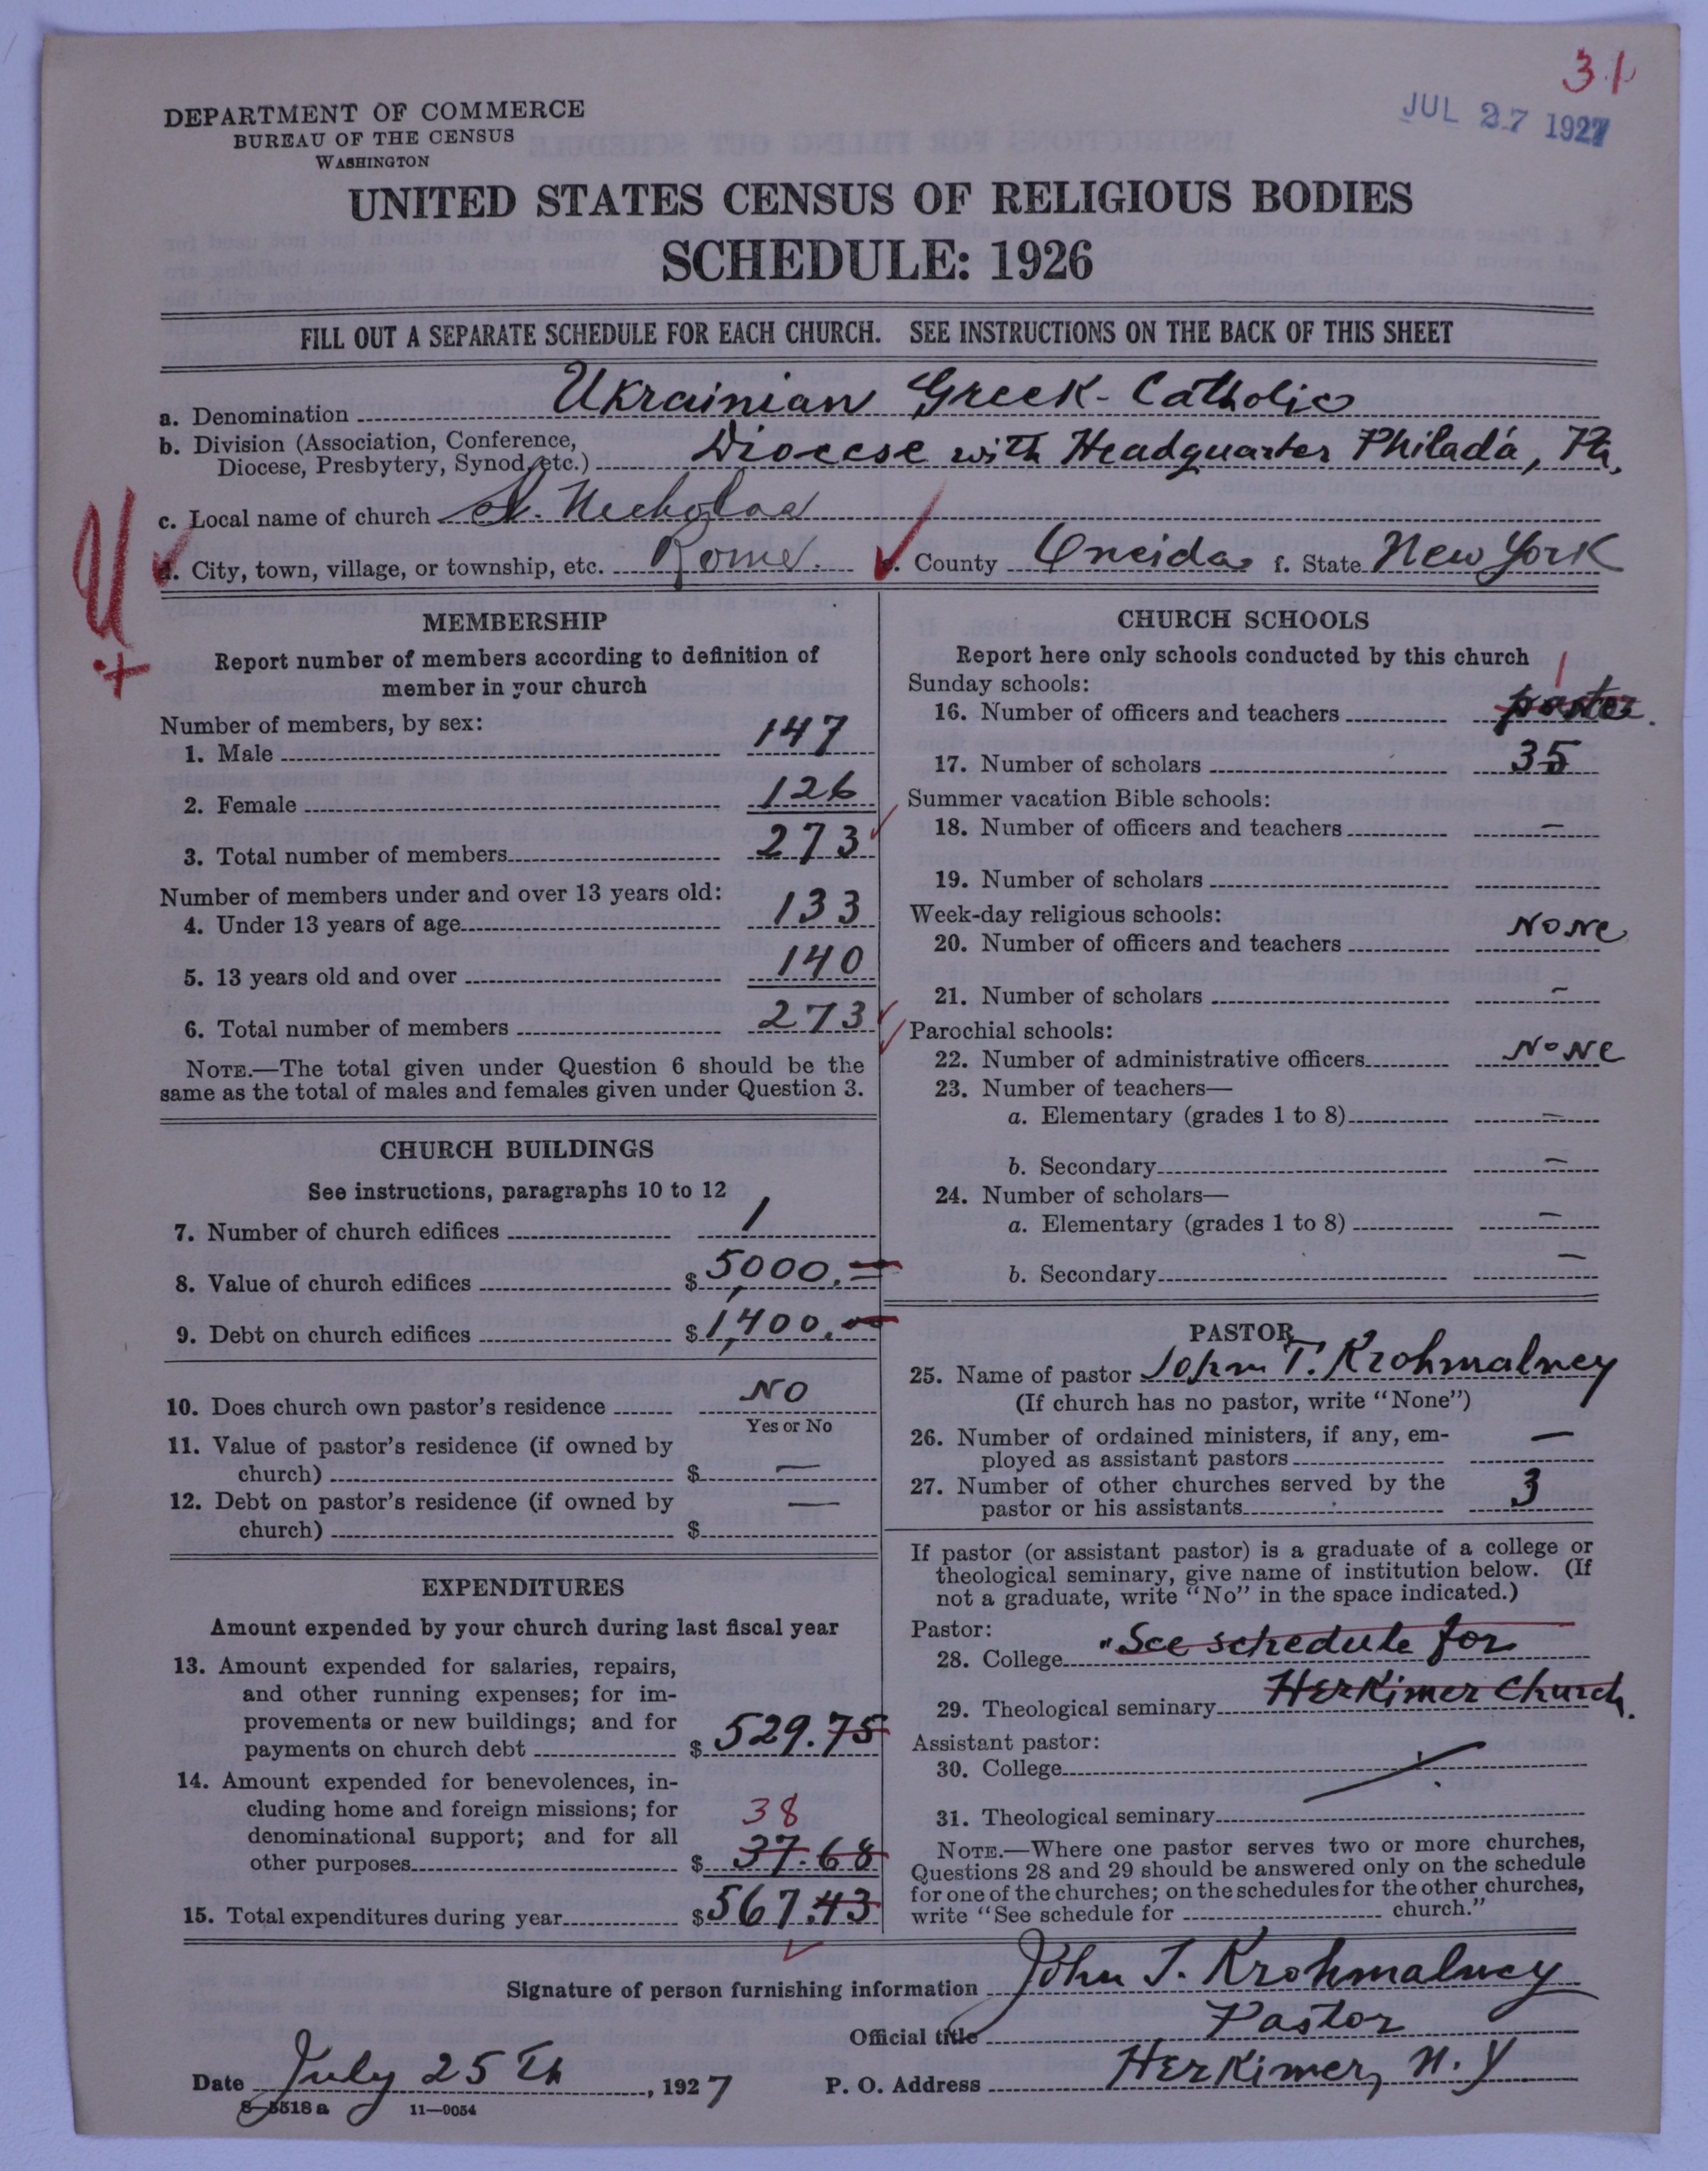 31
JUL 27 1927
DEPARTMENT OF COMMERCE
BUREAU OF THE CENSUS
WASHINGTON
UNITED STATES CENSUS OF RELIGIOUS BODIES
SCHEDULE: 1926
FILL OUT A SEPARATE SCHEDULE FOR EACH CHURCH. SEE INSTRUCTIONS ON THE BACK OF THIS SHEET
a. Denomination Ukrainian Greek-Catholic
b. Division (Association, Conference, Diocese, Presbytery, Synod, etc.) Diocese with Headquarter Philada, Pa.
c. Local name of church St. Nicholas
d. City, town, village, or township, etc. Rome. e. County Oneida f. State New York
MEMBERSHIP
Report number of members according to definition of
member in your church
Number of members, by sex:
1. Male 147
2. Female 126
3. Total number of members 273
Number of members under and over 13 years old:
4. Under 13 years of age 133
5. 13 years old and over 140
6. Total number of members 273
NOTE.—The total given under Question 6 should be the
same as the total of males and females given under Question 3.
CHURCH BUILDINGS
See instructions, paragraphs 10 to 12
7. Number of church edifices 1
8. Value of church edifices $5,000.=
9. Debt on church edifices $1,400.00
10. Does church own pastor's residence No
Yes or No
11. Value of pastor's residence (if owned by
church) $ —
12. Debt on pastor's residence (if owned by
church) $ —
EXPENDITURES
Amount expended by your church during last fiscal year
13. Amount expended for salaries, repairs,
and other running expenses; for im-
provements or new buildings; and for
payments on church debt $529.75
14. Amount expended for benevolences, in-
cluding home and foreign missions; for
denominational support; and for all
other purposes $ 38 37.68
15. Total expenditures during year $567.43
CHURCH SCHOOLS
Report here only schools conducted by this church
Sunday schools:
16. Number of officers and teachers 1 paster.
17. Number of scholars 35
Summer vacation Bible schools:
18. Number of officers and teachers —
19. Number of scholars
Week-day religious schools:
20. Number of officers and teachers None
21. Number of scholars —
Parochial schools:
22. Number of administrative officers None
23. Number of teachers—
a. Elementary (grades 1 to 8) —
b. Secondary —
24. Number of scholars—
a. Elementary (grades 1 to 8) —
b. Secondary —
PASTOR
25. Name of pastor John T. Krohmalney
(If church has no pastor, write "None")
26. Number of ordained ministers, if any, em-
ployed as assistant pastors —
27. Number of other churches served by the
pastor or his assistants 3
If pastor (or assistant pastor) is a graduate of a college or
theological seminary, give name of institution below. (If
not a graduate, write "No" in the space indicated.)
Pastor:
28. College "See schedule for
29. Theological seminary Herkimer Church.
Assistant pastor:
30. College
31. Theological seminary
NOTE.—Where one pastor serves two or more churches,
Questions 28 and 29 should be answered only on the schedule
for one of the churches; on the schedules for the other churches,
write "See schedule for church."
Signature of person furnishing information John T. Krohmalney
Official title Pastor
Date July 25th, 1927 P. O. Address Herkimer, N.Y
8-5518a 11—9054